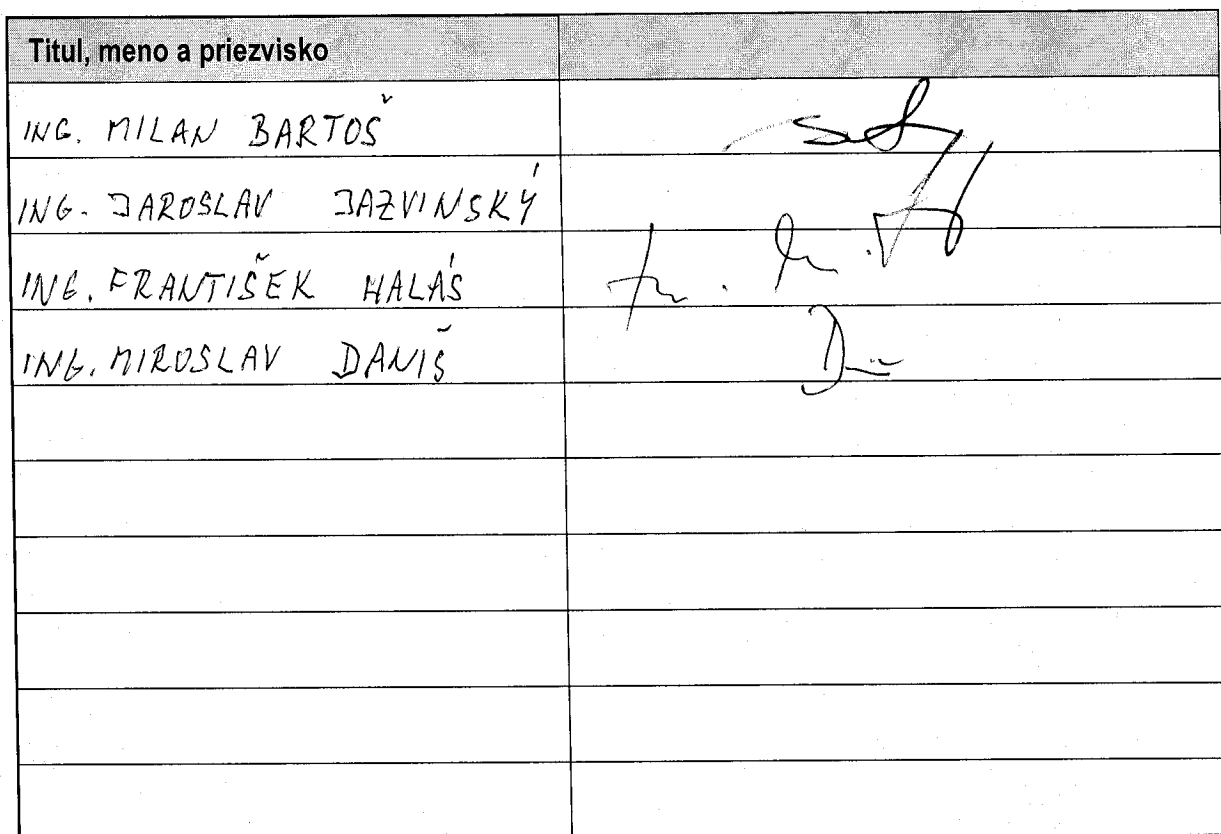 Titul, meno a priezvisko
ING. MILAN BARTOŠ
ING. JAROSLAV JAZVINSKÝ
ING. FRANTIŠEK HALÁS
ING. MIROSLAV DANIŠ